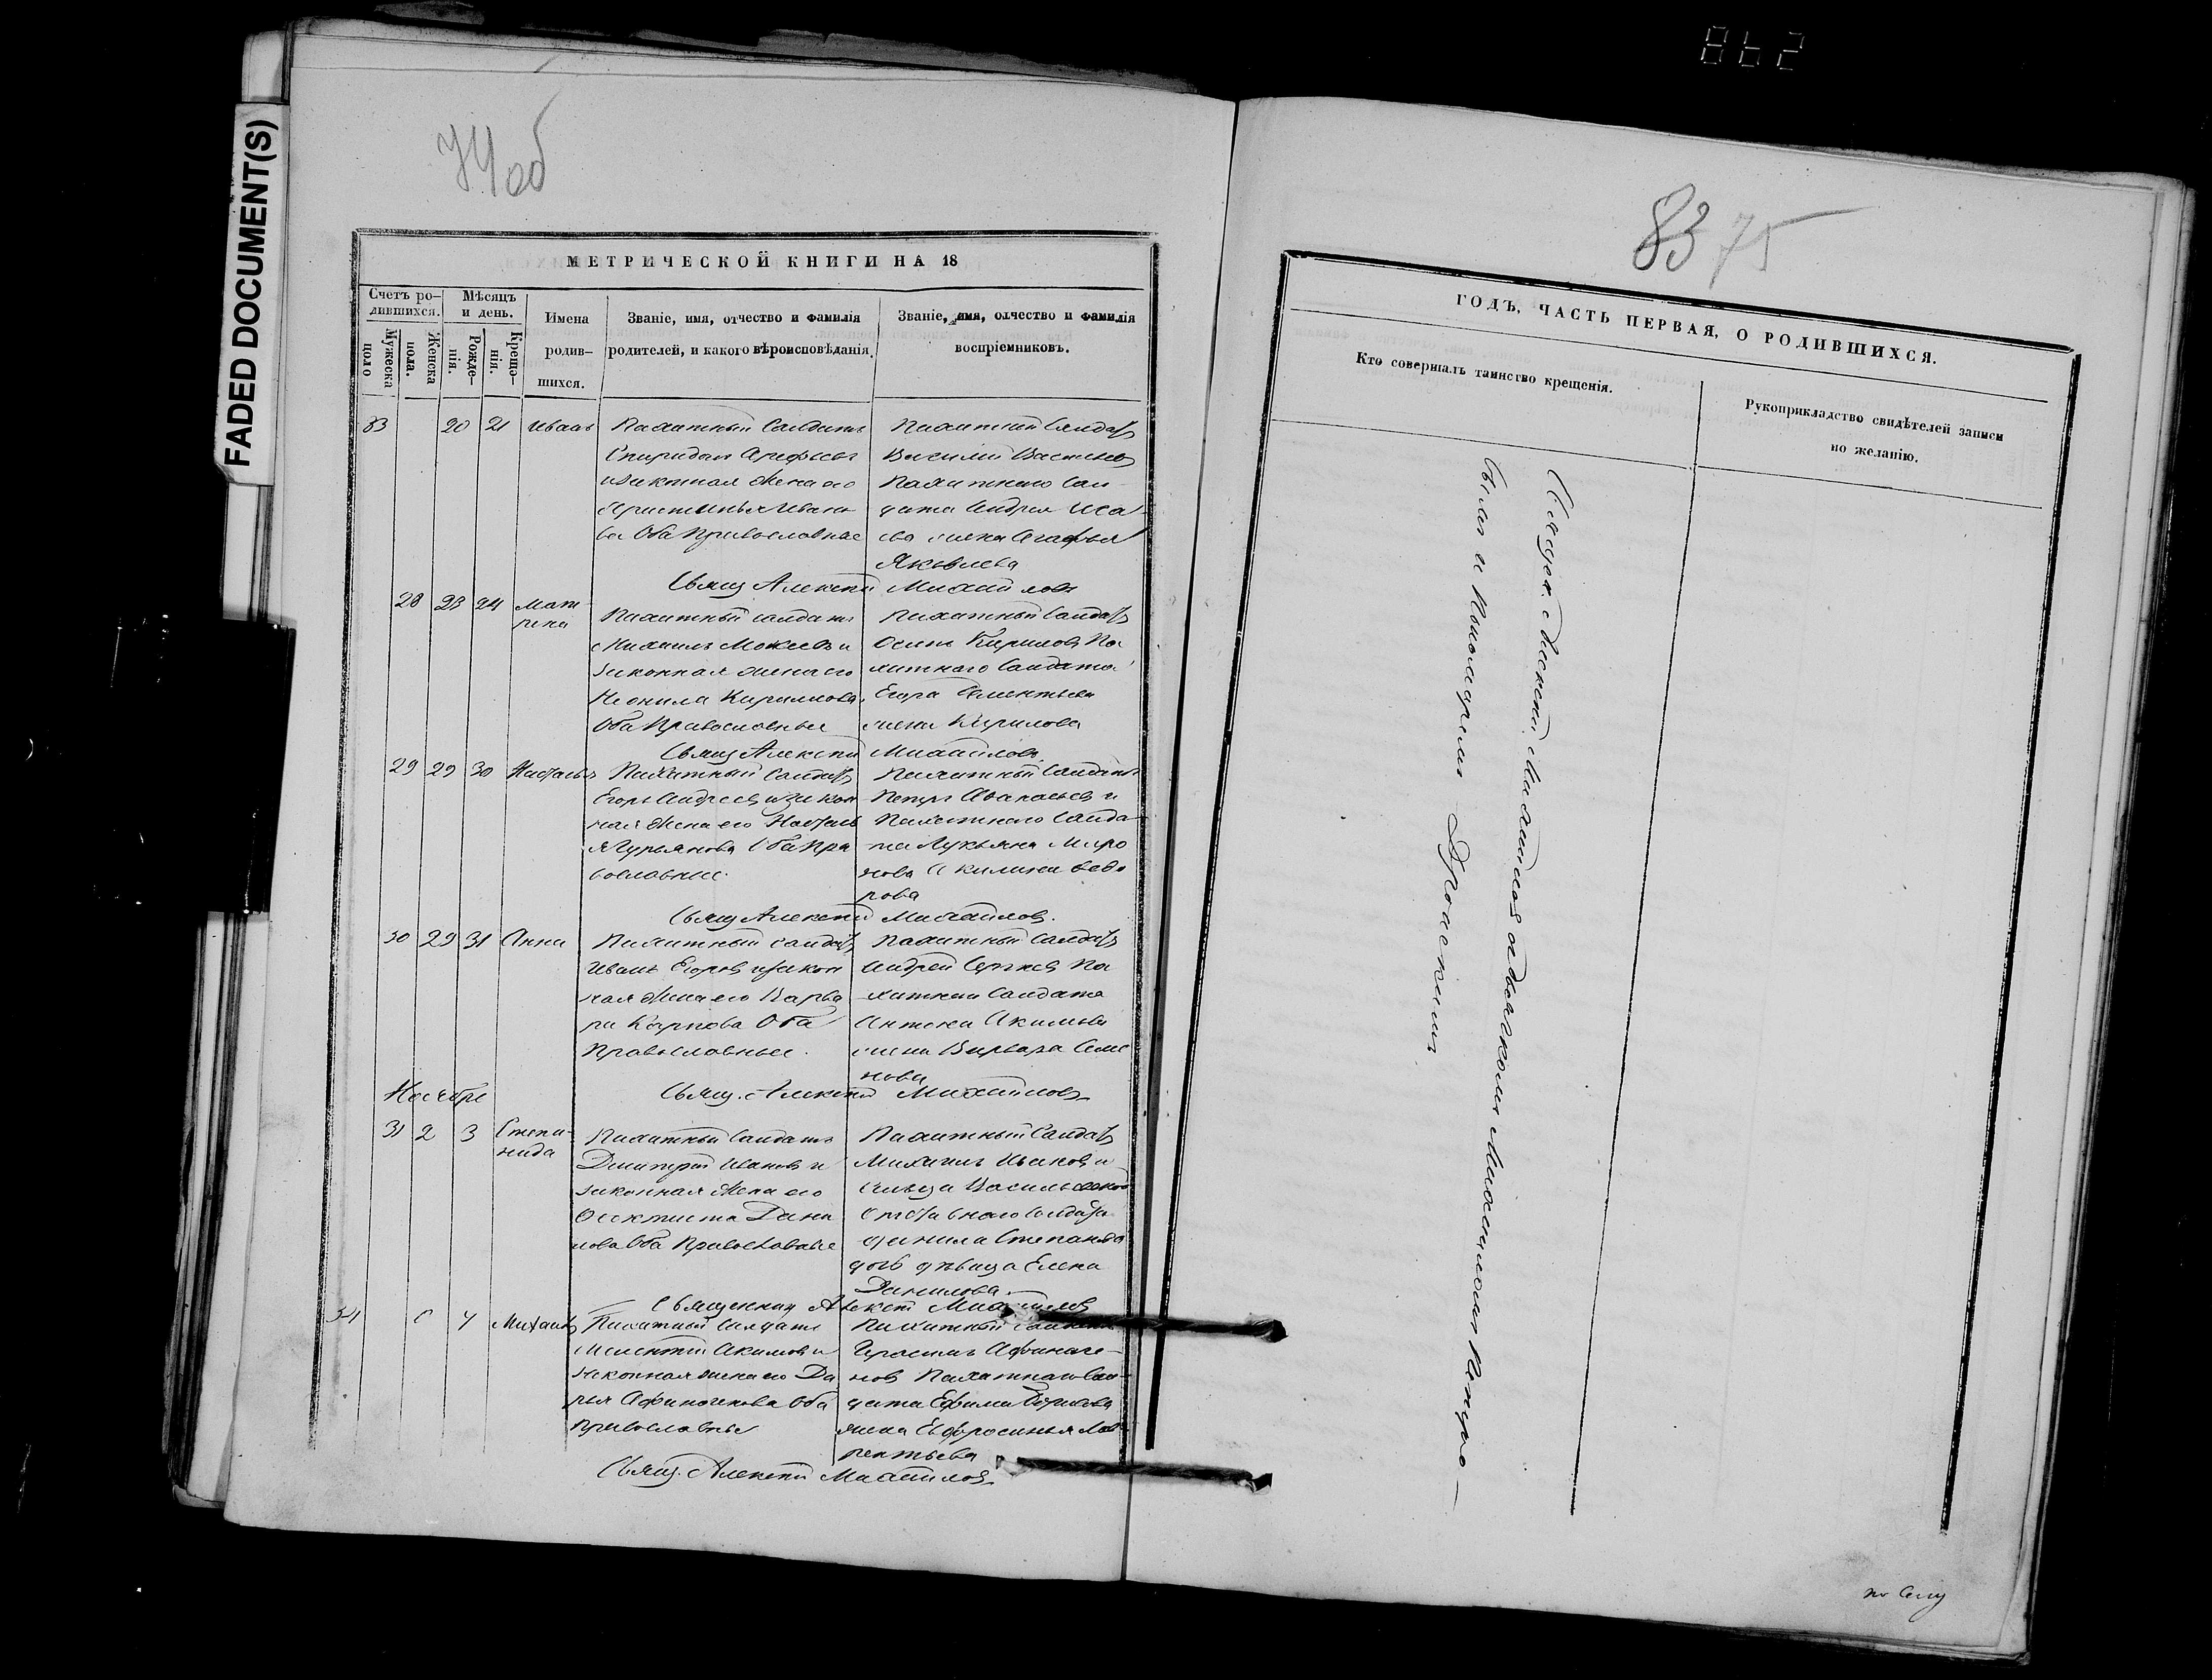 862
FADED DOCUMENT(S)
74об
МЕТРИЧЕСКОЙ КНИГИ НА 18
Счетъ ро-
дившихся.
Мужеска
пола
Женска
пола.
Мѣсяцъ
и день.
Рожде-
нія.
Креще-
нія.
Имена
родив-
шихся.
Званіе, имя, отчество и фамилія
родителей, и какого вѣроисповѣданія.
Званіе, имя, отчество и фамилія
воспріемниковъ.
33 20 21 Иванъ
Пахатный Солдатъ
Спиридон Арефьев
законная жена его
Иванова
Оба Православные
Пахатный Солдатъ
Василий Васильев
Пахатного Сол
дата Андрея Иса
ева жена Агафья
Яковлева
Свящ Алексей Михайлов
28 23 24 Мат
рена
Пахатный солдатъ
Михаилъ Мокеев и
законная жена его
Неонила Кирилова
Оба Православные
Пахатный Солдатъ
Осипъ Кирилов Па
хатного Солдата
Егора
жена Кирилова
Свящ Алексей Михайлов
29 29 30 Настасья
Пахатный Солдатъ
Егоръ Андреев и закон
ная жена его Настась
я Гурьянова Оба Пра
вославные
Пахатный Солдатъ
Петръ Афанасьев и
Пахатного Солда
та Лукьяна Миро
нова Акилина Федо
рова
Свящ Алексей Михайлов.
30 29 31 Анна
Пахатный солдатъ
Иванъ Егоров и закон
ная жена его Варва
ра Карпова Оба
Православные.
Пахатный Солдатъ
Андрей Сергеев Па
хатнаго Солдата
Антона Акимова
жена Варвара Семе
нова
Свящ. Алексей Михайлов
Ноября
31 2 3 Степа-
нида
Пахатный Солдатъ
Дмитрий Иванов и
законная жена его
Феоктиста Дани
лова Оба Православные
Пахатный Солдатъ
Михаилъ Иванов и
сельца
Солдата
Данила Степанова
дочь девица Елена
Данилова.
Священник Алексей Михайлов
34 4 Михаилъ
Пахатный Солдатъ
Акимов и
законная жена его Да
рья Афиногенова Оба
Православные
Пахатный Солдатъ
Герасимъ Афиноге-
нов Пахатнаго Сол-
дата Ефима
жена Евфросинья Лав
рентьева
Свящ. Алексей Михайлов
83 75
ГОДЪ, ЧАСТЬ ПЕРВАЯ, О РОДИВШИХСЯ.
Кто совершалъ таинство крещенія.
Рукоприкладство свидѣтелей записи
по желанію.
Священ. Алексей Михайлов с дьячкомъ Михаиломъ
и Пономаремъ